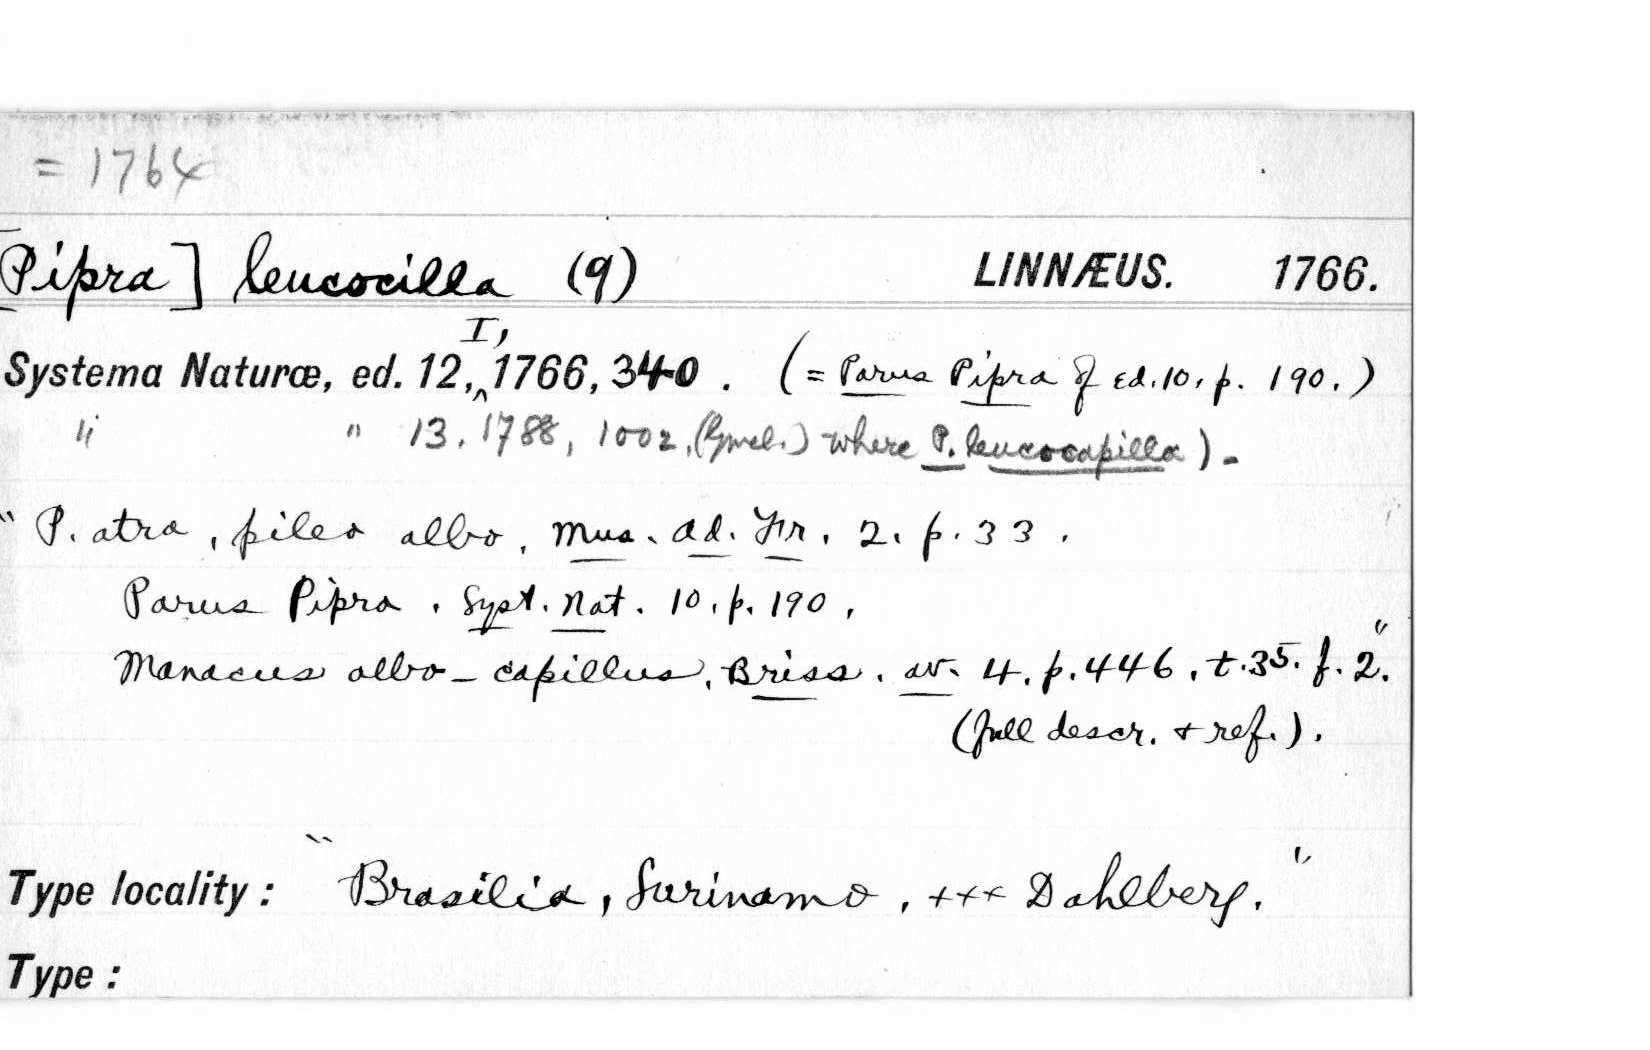 = 1764
[Pipra] leucocilla (9) LINNÆUS. 1766.
Systema Naturæ, ed. 12, I, 1766, 340. (= Parus Pipra of Ed. 10, p. 190.)
" " 13. 1788, 1002, (Gmel.) where P. leucocapilla).
" P. atra, pileo albo. Mus. Ad. Fr. 2. p. 33.
Parus Pipra. Syst. Nat. 10. p. 190.
Manacus albo-capillus. Briss. av. 4. p. 446. t. 35. f. 2."
(full descr. & ref.).
Type locality: "Brasilia, Surinamo, +++ Dahlberg."
Type: